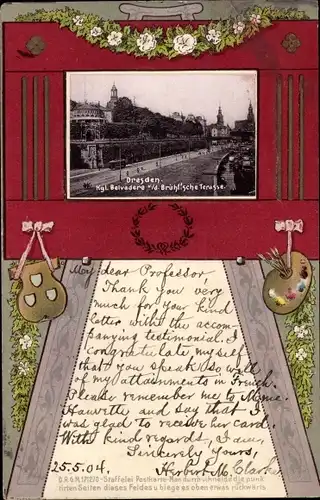 Dresden.
Kgl. Belvedere a/d. Brühl'sche Terasse.
My dear Professor
Thank you very
much for your kind
letter with the accom-
panying testimonial. I
congratulate myself
that you speak so well
of my attainments in French.
Please remember me to Mme.
Hauvette and say that I
was glad to receive her card.
With kind regards, I am,
Sincerely yours,
25.5.04. Herbert M. Clarke
D.R.G.M. 171270 - Staffelei Postkarte - Man durchschneide die punk
tirten Seiten dieses Feldes u. biege es oben etwas rückwärts.